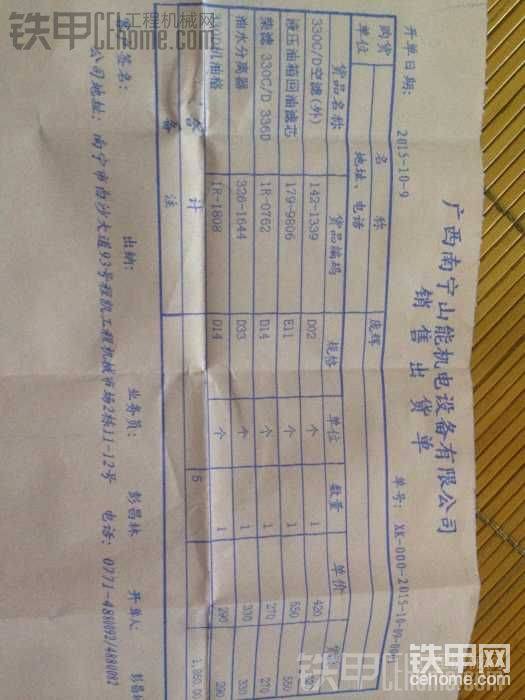 铁甲工程机械网
cehome.com
广西南宁山能机电设备有限公司
销售出货单
开单日期： 2015-10-9
单号： XK-000-2015-10-09-
购货单位 名称 庞辉
地址、电话
货品名称 货品编码 规格 单位 数量 单价
330C/D空滤(外) 142-1339 D02 个 1 420
液压油箱回油滤芯 179-9806 E11 个 1 550 550
柴滤 330C/D 336D 1R-0762 D14 个 1 270 270
油水分离器 326-1644 D33 个 1 330 330
机油格 1R-1808 D14 个 1 290 290
合计 5 1,860.00
备注
签名： 出纳： 业务员： 彭昌林 开单人： 彭昌林
公司地址： 南宁市白沙大道93号程凯工程机械市场2栋11-12号 电话： 0771-4880092/4880082
铁甲网
cehome.com